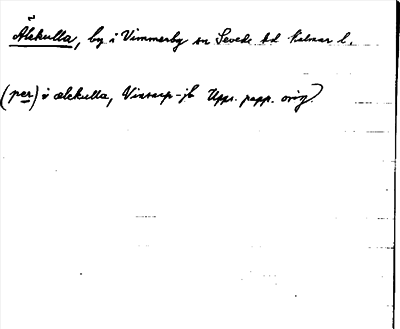 Älekulla, by i Vimmerby sn Sevede hd Kalmar l.
(per) i ælekulla, Vinsarp-jb Upps. papp. orig.